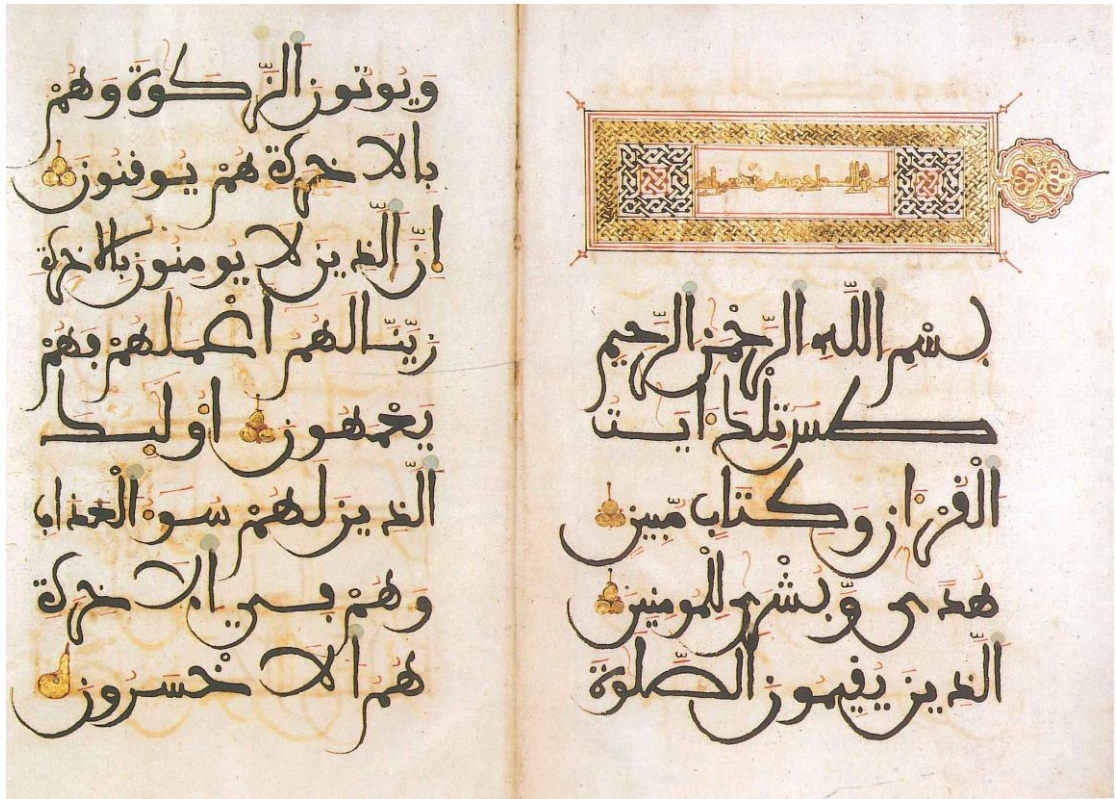 بِسْمِ اللَّهِ الرَّحْمَنِ الرَّحِيمِ
طس تِلْكَ ءَايَتُ
الْقُرْءَانِ وَكِتَابٍ مُّبِينٍ
هُدًى وَبُشْرَى لِلْمُومِنِينَ
الَّذِينَ يُقِيمُونَ الصَّلَوةَ
وَيُوتُونَ الزَّكَوةَ وَهُمْ
بِالَاخِرَةِ هُمْ يُوقِنُونَ
إِنَّ الَّذِينَ لَا يُومِنُونَ بِالَاخِرَةِ
زَيَّنَّا لَهُمُ أَعْمَلَهُمْ فَهُمْ
يَعْمَهُونَ أُوْلَيِكَ
الَّذِينَ لَهُمْ سُوءُ الْعَذَابِ
وَهُمْ فِي الَاخِرَةِ
هُمُ الَاخْسَرُونَ